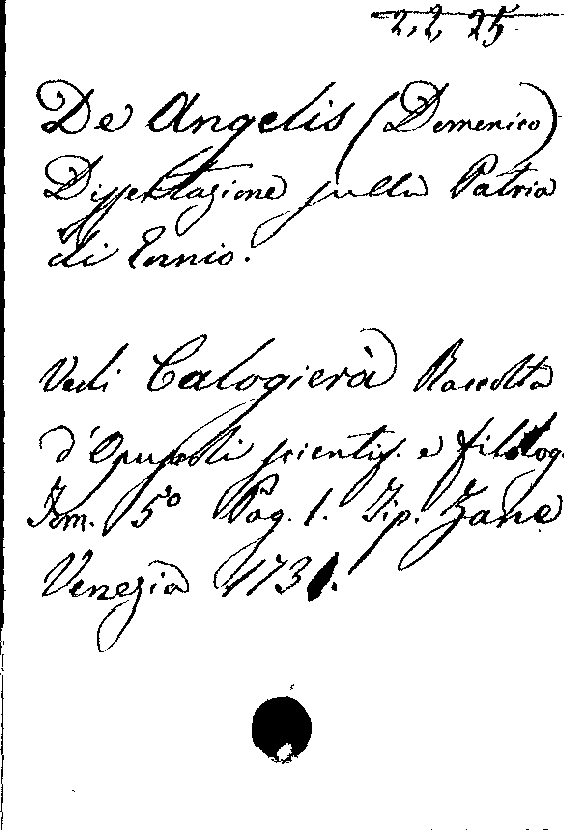 2, 2, 25
De Angelis (Domenico)
Dissertazione sulla Patria
di Ennio.
Vedi Calogierà Raccolta
d'Opuscoli scientif. e filolog.
Tom. 5º Pag. 1. Tip. Zane
Venezia 1731.